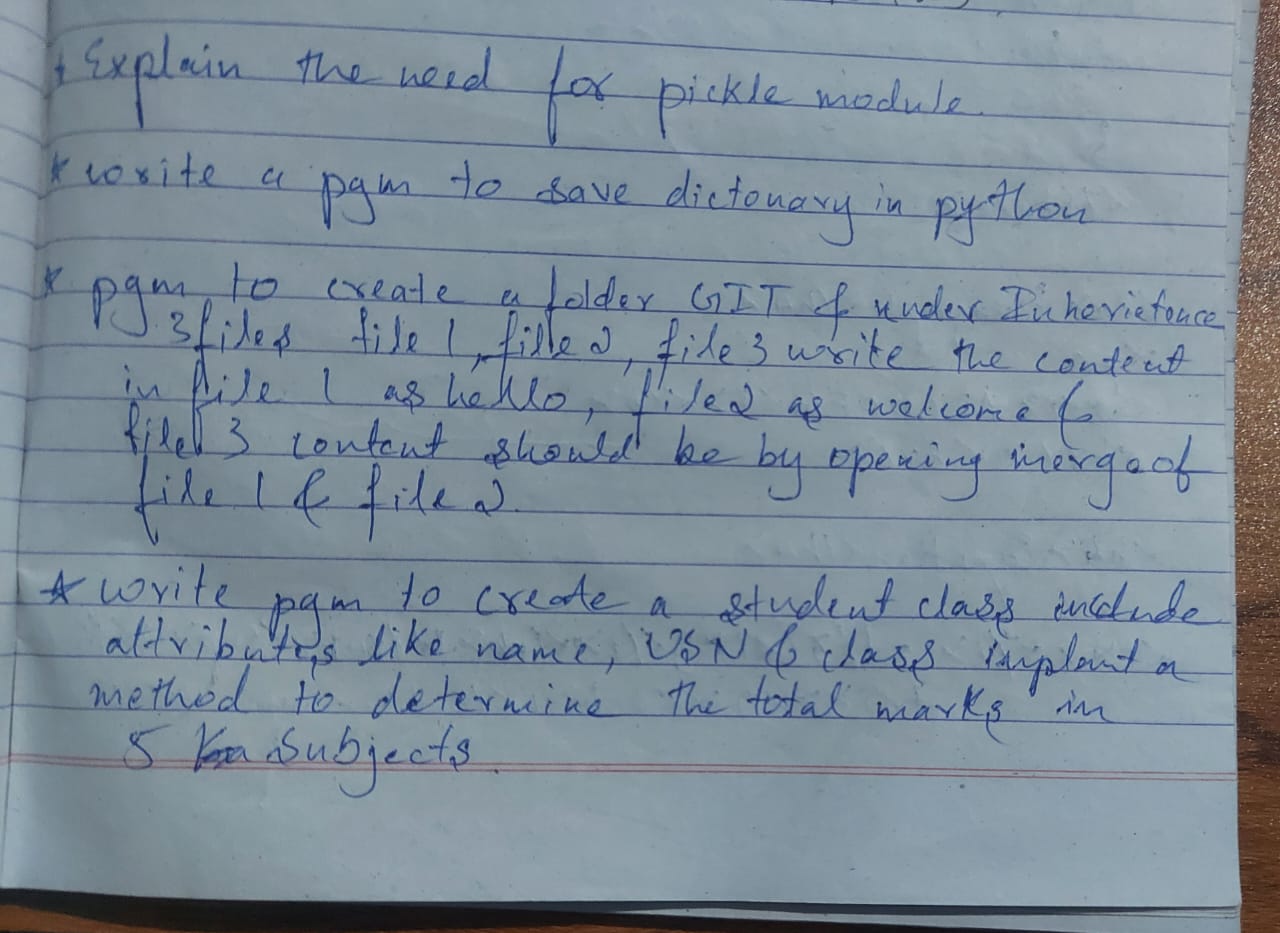 * Explain the need for pickle module.
* write a pgm to save dictonary in python
* pgm to create a folder GIT & under Inherietence
3 files file 1, file 2, file 3 write the content
in file 1 as hello, file2 as welcome &
file 3 content should be by opening merge of
file 1 & file 2.
* write pgm to create a student class include
attributes like name, USN & class implant a
method to determine the total marks in
5 subjects.